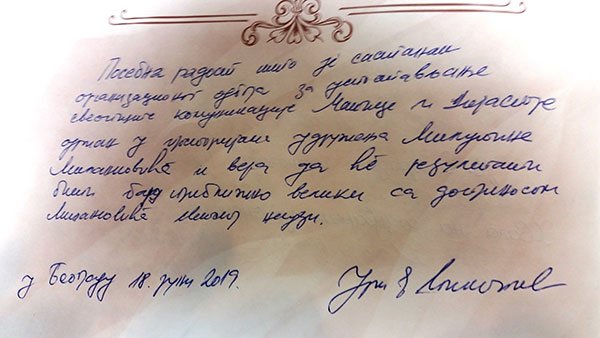 Посебна радост што је састанак
организационог одбора за успостављање
свеопште комуникације Матице и Дијаспоре
одржан у просторијама удружења Милутина
Миланковића и вера да ће резултати
бити бар приближно велики са доприносом
Миланковића светској науци.
у Београду 18. јуни 2019.